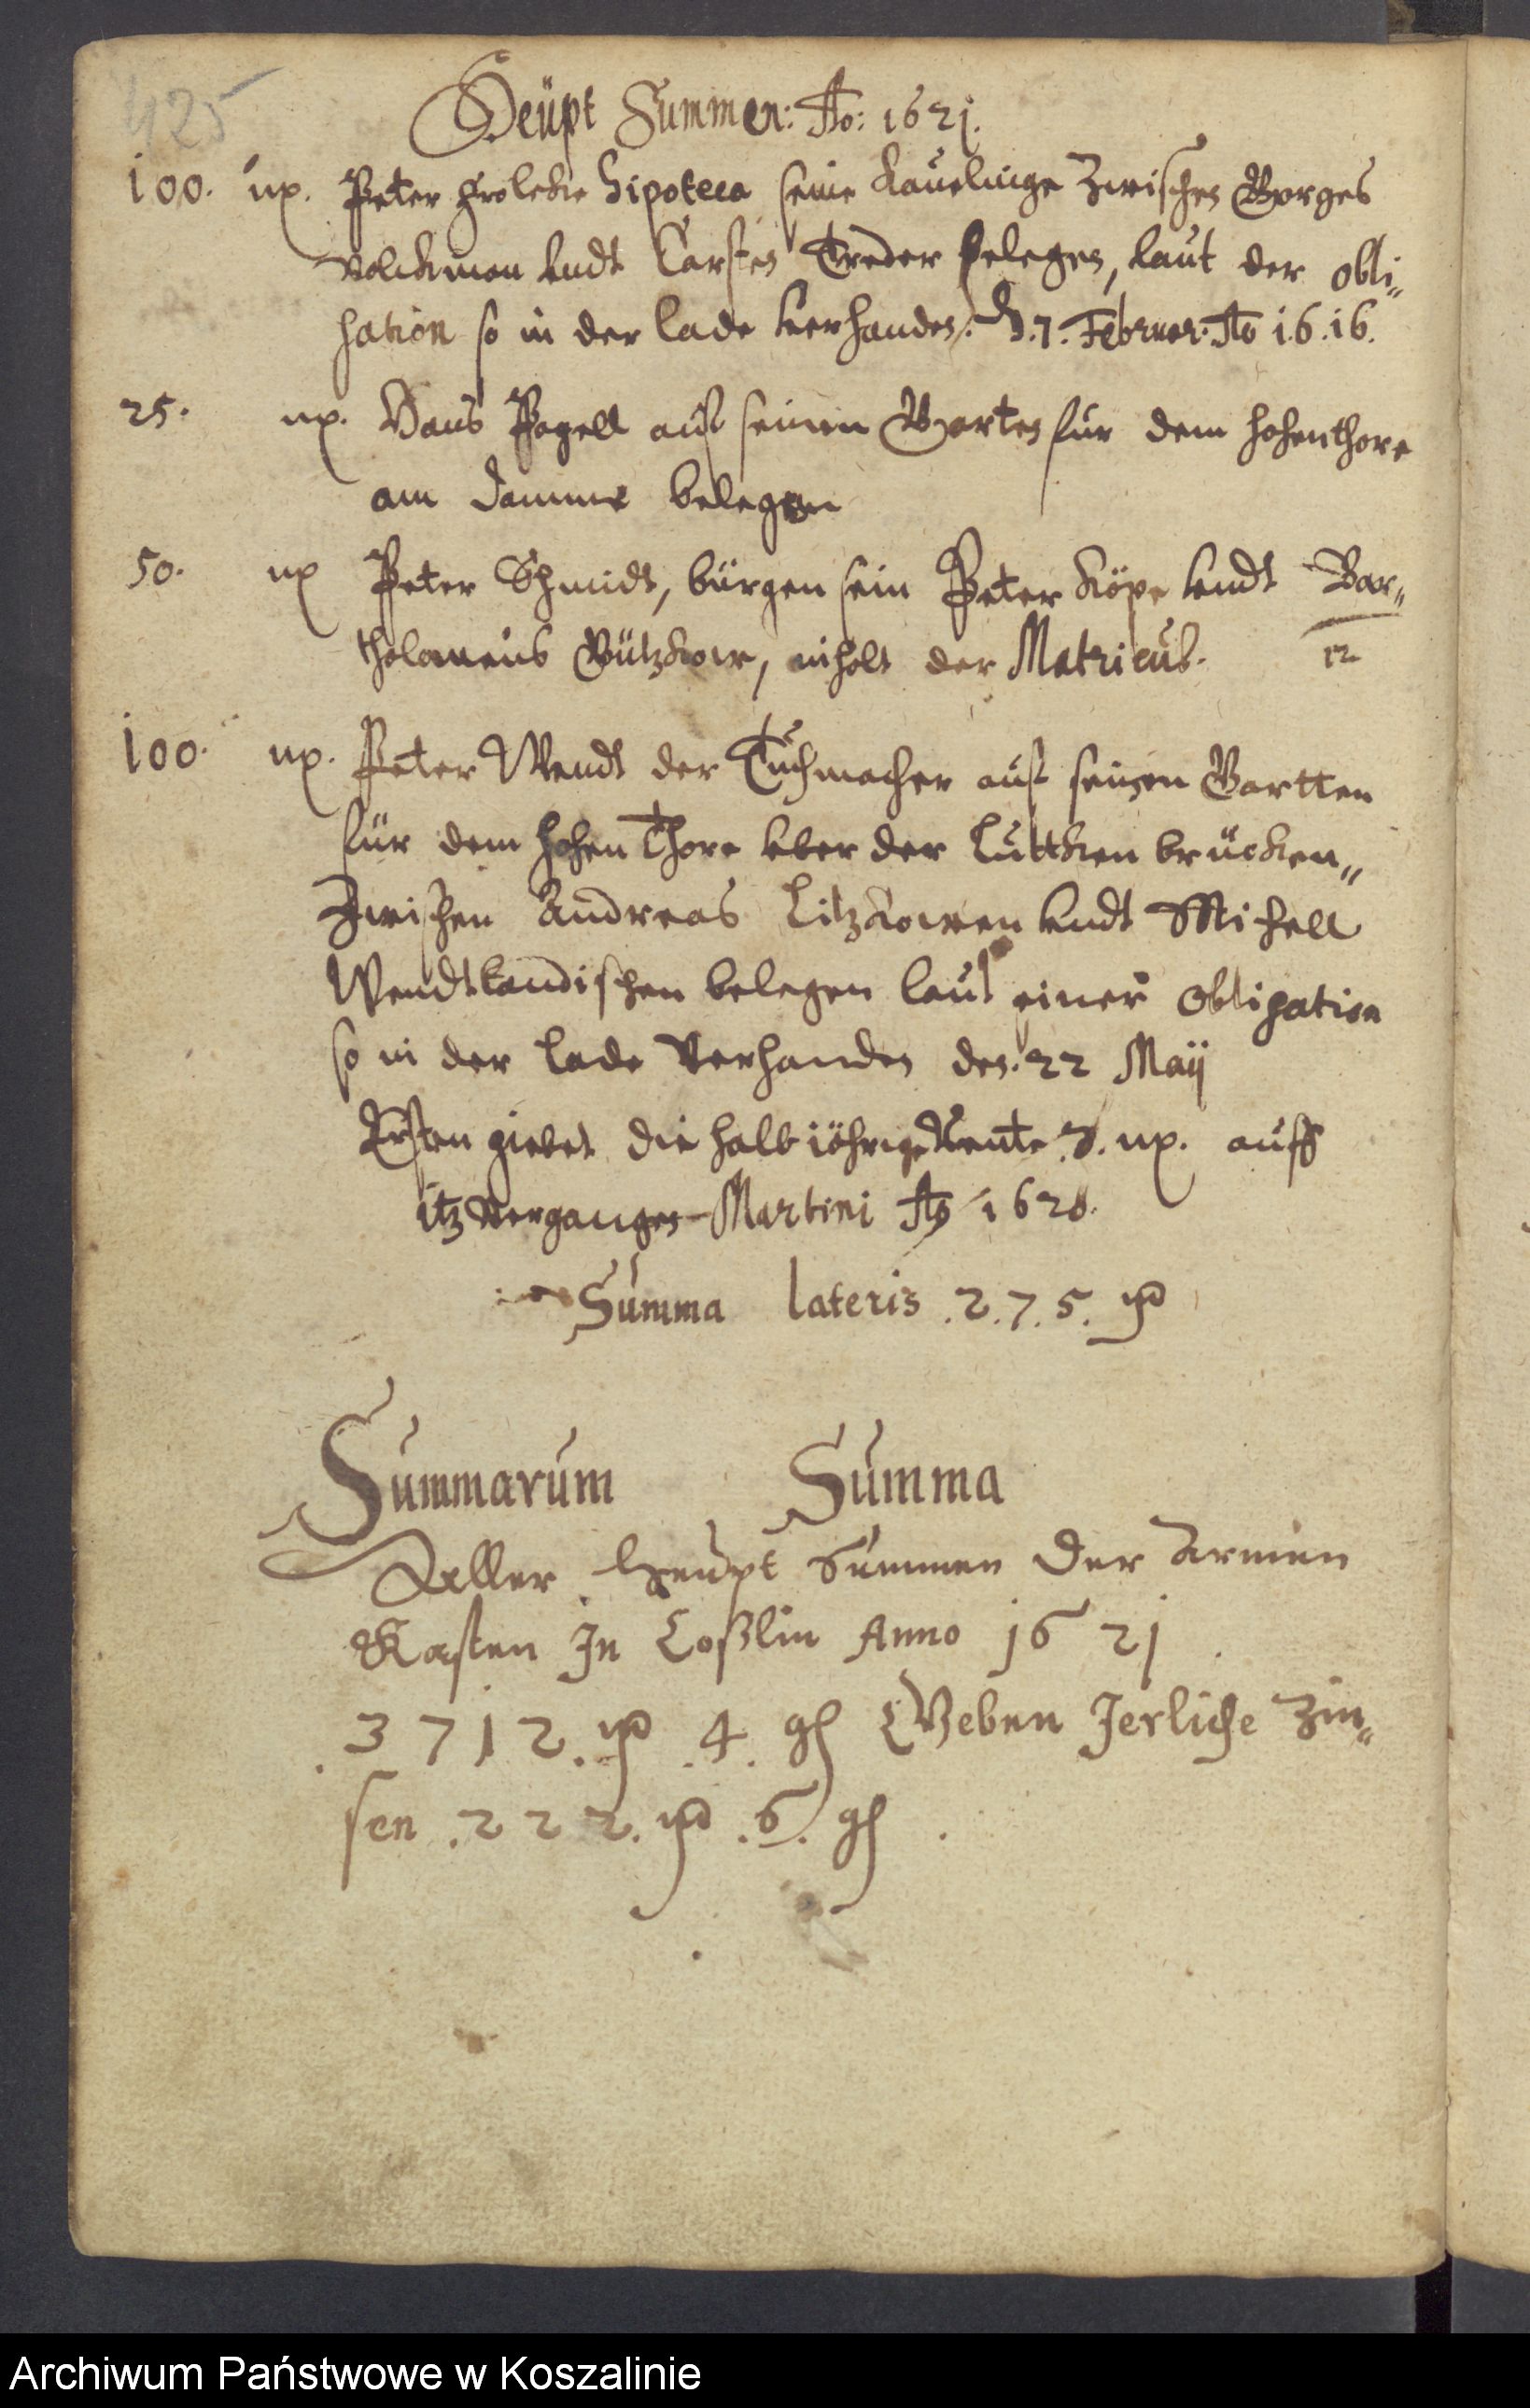 425
Heüpt Summen: Ao: 1621.
100. mp. Peter hipoteca seine Kauelinge Zwischen Gorges
Volckman vndt Carsten Treder belegen, laut der obli„
gation so in der lade verhanden. d. 7. Februar: Ao 1616.
25. mp. Hans Pagell auf seinen Garten für dem hohenthore
am damme belegen
50. mp Peter Schmidt, bürgen sein Peter Köpe vndt Bar„
tholomeus Gützkow, inholt der Matricul.
100. mp. Peter Wendt der Tuchmacher auf seinen Gartten
für dem hohen Thore vber der Lüttken brücken„
Zwischen Andreas Litzkowen vndt Michell
Wendtlandischen belegen laut einer obligation
so in der lade verhanden den. 22 Maij
giebet die halb iöhrige Rente 3. mp. auff
itz vergangen Martini Ao 1620.
Summa lateris .2.7.5. mp
Summarum Summa
Aller Heupt Summen der Armen
Kasten In Coßlin Anno 1621
.3712. mp .4. gl Geben Jerliche Zin„
sen .222. mp .6. gl
Archiwum Państwowe w Koszalinie